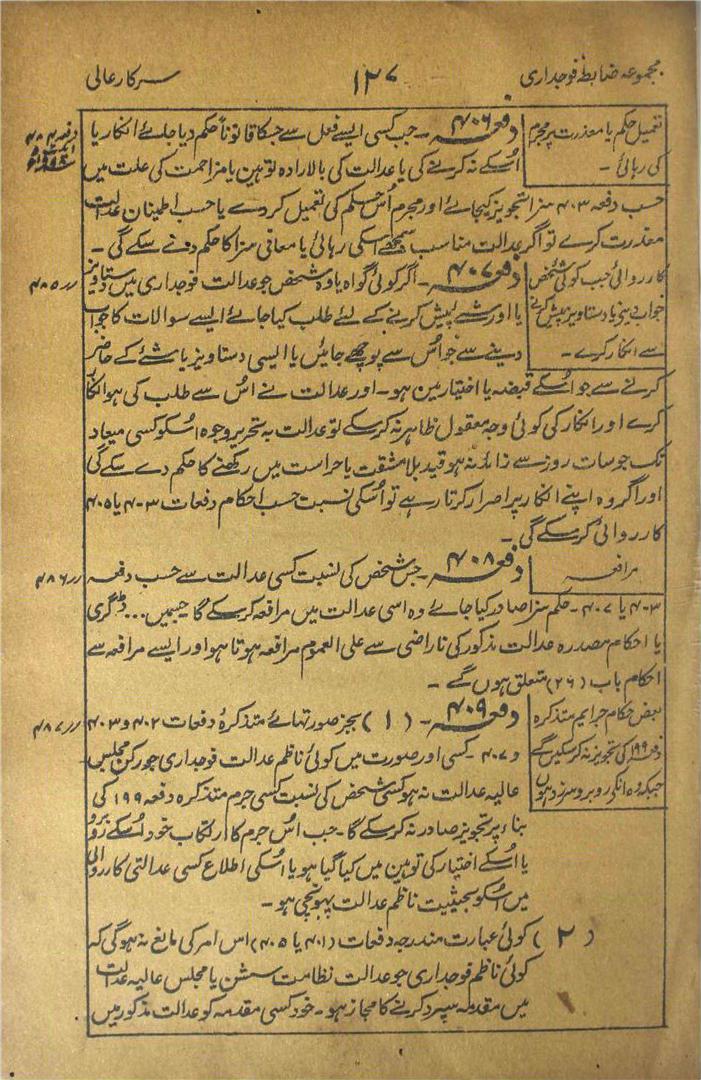 مجموعہ ضابطہ فوجداری
۱۲۷
سرکار عالی
تعمیل حکم یا معذرت پر مجرم
کی رہائی ۔
دفعہ ۴۰۶ ۔ جب کسی ایسے فعل سے جسکا قانوناً حکم دیا جائے انکار یا
اُسکے نہ کرنے کی یا عدالت کی بالارادہ توہین یا مزاحمت کی علت میں
حسب دفعہ ۴۰۳ سزا تجویز کیجائے اور مجرم اُس حکم کی تعمیل کردے یا حسب اطمینان عدالت
معذرت کرے تو اگر عدالت مناسب سمجھے اُسکی رہائی یا معافی سزا کا حکم دے سکے گی ۔
کارروائی جب کوئی شخص
جواب دینی یا دستاویز پیش کرنے
سے انکار کرے ۔
دفعہ ۴۰۷ ۔ اگر کوئی گواہ یا وہ شخص جو عدالت فوجداری میں دستاویز
یا اور شے پیش کرنے کے لئے طلب کیا جائے ایسے سوالات کا جواب
دینے سے جو اُس سے پوچھے جائیں یا ایسی دستاویز یا شئے کے حاضر
کرنے سے جو اُسکے قبضہ یا اختیار مین ہو ۔ اور عدالت نے اُس سے طلب کی ہو انکار
کرے اور انکار کی کوئی وجہ معقول ظاہر نہ کرسکے تو عدالت بہ تحریر وجوہ اُسکو کسی میعاد
تک جو سات روز سے زائد نہ ہو قید بلا مشقت یا حراست میں رکھنے کا حکم دے سکے گی
اور اگر وہ اپنے انکار پر اصرار کرتا رہے تو اُسکی نسبت حسب احکام دفعات ۴۰۳ یا ۴۰۵
کارروائی کرسکے گی ۔
〃 ۴۸۵
مرافعہ
دفعہ ۴۰۸ ۔ جس شخص کی نسبت کسی عدالت سے حسب دفعہ
〃 ۴۸۶
۴۰۳ یا ۴۰۷ ۔ حکم سزا صادر کیا جائے وہ اسی عدالت میں مرافعہ کرسکے گا جسمیں... ڈگری
یا احکام مصدرہ عدالت مذکور کی ناراضی سے علی العموم مرافعہ ہوتا ہو اور ایسے مرافعہ سے
احکام باب (۲۶) متعلق ہوں گے ۔
بعض حکام جرایم متذکرہ
دفعہ ۱۹۹ کی تجویز نہ کرسکیں گے
جبکہ وہ انکی روبرو سرزد ہوں
دفعہ ۴۰۹ ۔ (۱) بجز صورتہائے متذکرۂ دفعات ۴۰۲ و ۴۰۳
〃 ۴۸۷
و ۴۰۷ ۔ کسی اور صورت میں کوئی ناظم عدالت فوجداری جو رکن مجلس
عالیہ عدالت نہ ہو کسی شخص کی نسبت کسی جرم متذکرہ دفعہ ۱۹۹ کی
بناء پر تجویز صادر نہ کرسکے گا ۔ جب اُس جرم کا ارتکاب خود اُسکے روبرو
یا اُسکے اختیار کی توہین میں کیا گیا ہو یا اُسکی اطلاع کسی عدالتی کارروائی
میں اُسکو بحیثیت ناظم عدالت پہونچی ہو ۔
(۲) کوئی عبارت مندرجہ دفعات (۴۰۱ یا ۴۰۵) اس امر کی مانع نہ ہوگی کہ
کوئی ناظم فوجداری جو عدالت نظامت سشن یا مجلس عالیہ عدالت
میں مقدمہ سپرد کرنے کا مجاز ہو ۔ خود کسی مقدمہ کو عدالت مذکور میں